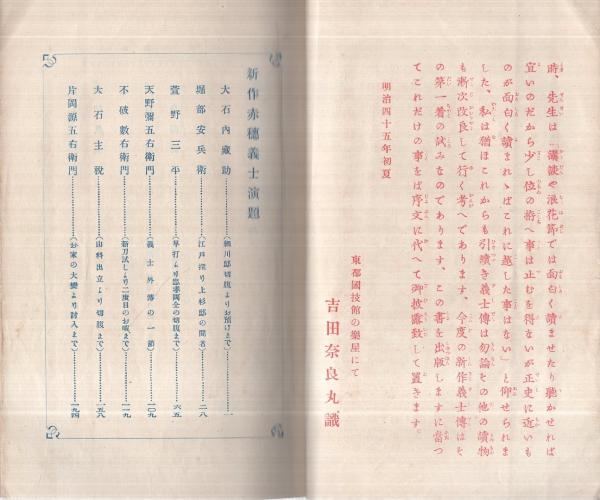 時、先生は「講談や浪花節では面白く讀ませたり聽かせれば
宜いのだから少し位の拵へ事は止むを得ないが正史に近いも
のが面白く讀まれゝばこれに越した事はない」と仰せられま
した、私は猶ほこれからも引續き義士傳は勿論その他の讀物
も漸次改良して行く考へであります、今度の新作義士傳はそ
の第一着の試みなのであります、この書を出版しますに當つ
てこれだけの事をば序文に代へて御披露致して置きます。
明治四十五年初夏
東都國技館の樂屋にて
吉田奈良丸識
新作赤穗義士演題
大石内藏助…………(細川邸切腹よりお預けまで)………一
堀部安兵衛…………(江戸探り上杉邸の間者)………二八
萱野三平…………(早打より忠孝兩全の切腹まで)………六五
天野彌五右衛門…………(義士外傳の一節)………一〇九
不破數右衛門…………(新刀試しより二度目のお咳まで)………一一九
大石主税…………(山科出立より切腹まで)………一五八
片岡源五右衛門…………(お家の大變より討入まで)………一九四